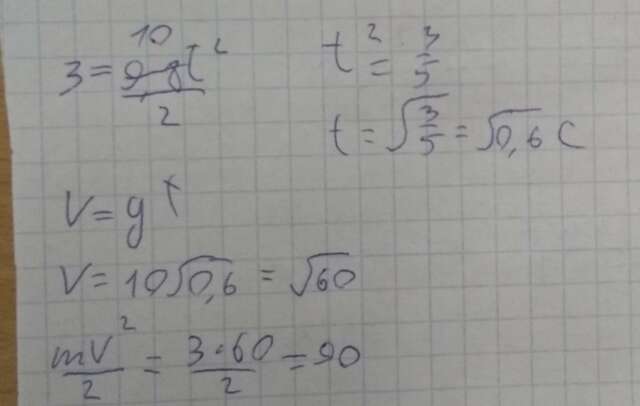 3 = 10t²/2
t² = 3/5
t = √(3/5) = √0,6 с
V = gt
V = 10√0,6 = √60
mV²/2 = 3·60/2 = 90